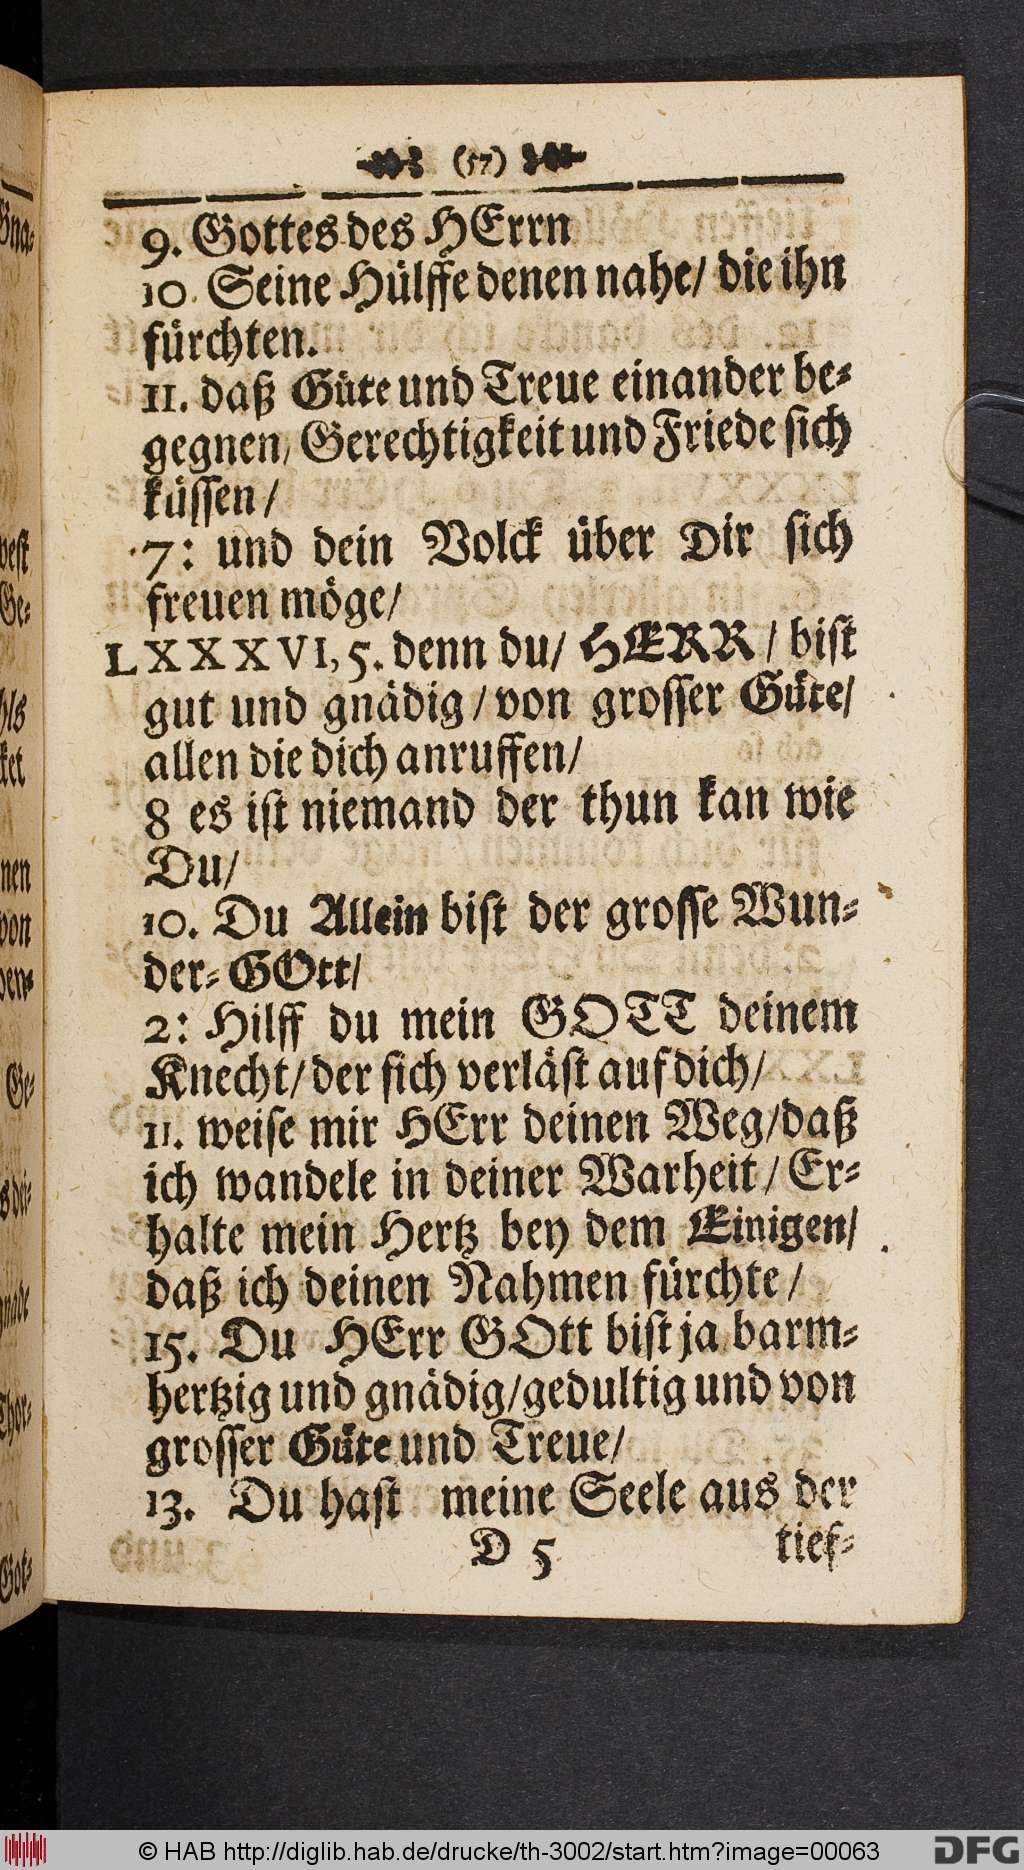 (57)
9. Gottes des HErrn
10. Seine Hülffe denen nahe/ die ihn
fürchten.
11. daß Güte und Treue einander be-
gegnen/ Gerechtigkeit und Friede sich
küssen/
7: und dein Volck über Dir sich
freuen möge/
LXXXVI, 5. denn du/ HERR / bist
gut und gnädig / von grosser Güte/
allen die dich anruffen/
8 es ist niemand der thun kan wie
Du/
10. Du Allein bist der grosse Wun-
der-GOtt/
2: Hilff du mein GOTT deinem
Knecht/ der sich verläst auf dich/
11. weise mir HErr deinen Weg/ daß
ich wandele in deiner Warheit / Er-
halte mein Hertz bey dem Einigen/
daß ich deinen Nahmen fürchte /
15. Du HErr GOtt bist ja barm-
hertzig und gnädig/ gedultig und von
grosser Güte und Treue/
13. Du hast meine Seele aus der
D 5 tief-
© HAB http://diglib.hab.de/drucke/th-3002/start.htm?image=00063
DFG